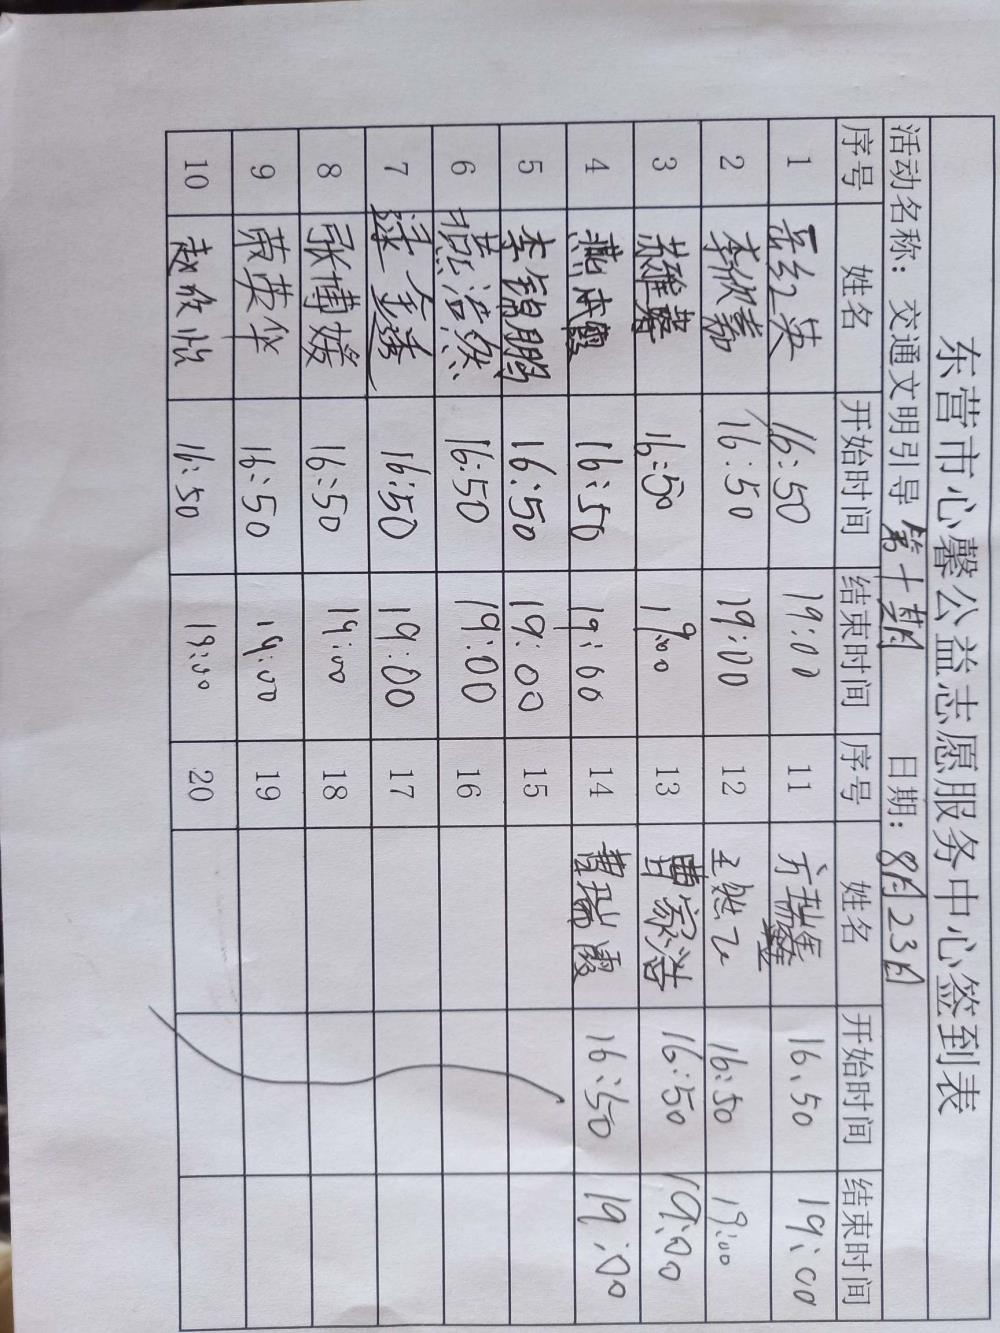 东营市心馨公益志愿服务中心签到表
活动名称：交通文明引导第十期 日期：8月23日
序号 姓名 开始时间 结束时间 序号 姓名 开始时间 结束时间
1 岳红英 16:50 19:00 11 方瑞鑫 16:50 19:00
2 李欣嘉 16:50 19:00 12 16:50 19:00
3 16:50 19:00 13 曹家浩 16:50 19:00
4 16:50 19:00 14 曹瑞霞 16:50 19:00
5 李锦鹏 16:50 19:00 15
6 16:50 19:00 16
7 16:50 19:00 17
8 张博媛 16:50 19:00 18
9 16:50 19:00 19
10 赵欣怡 16:50 19:00 20